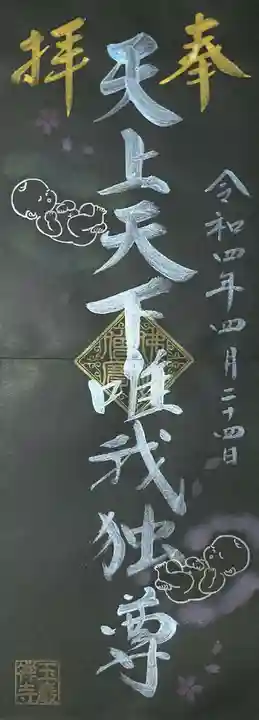 奉拝
令和四年四月二十四日
天上天下唯我独尊
佛法僧寶
玉龍禅寺